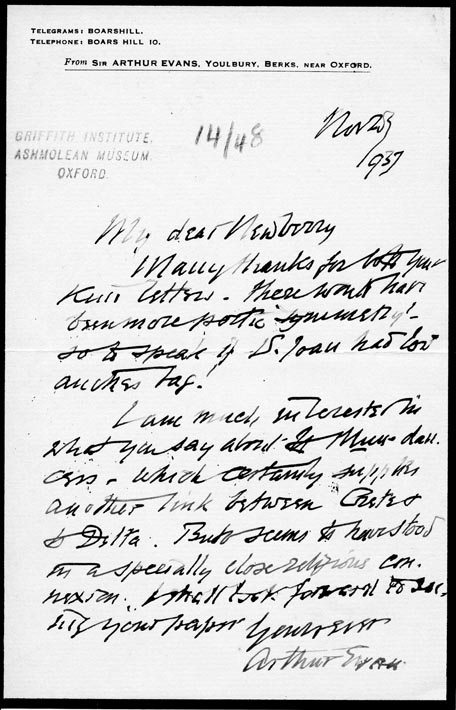 TELEGRAMS: BOARSHILL.
TELEPHONE: BOARS HILL 10.
From SIR ARTHUR EVANS, YOULBURY, BERKS, NEAR OXFORD.
Nov 23
1937
14/48
GRIFFITH INSTITUTE,
ASHMOLEAN MUSEUM,
OXFORD.
My dear Newberry
Many thanks for both your
kind letters. There would have
been more poetic symmetry!-
so to speak if S. Joan had lost
another bag!
I am much interested in
what you say about Muu-dan-
cers - which certainly supplies
another link between Crete &
Delta. Buto seems to have stood
in a specially close religious con-
nexion. I shall look forward to see-
ing your paper
Yours ever
Arthur Evans